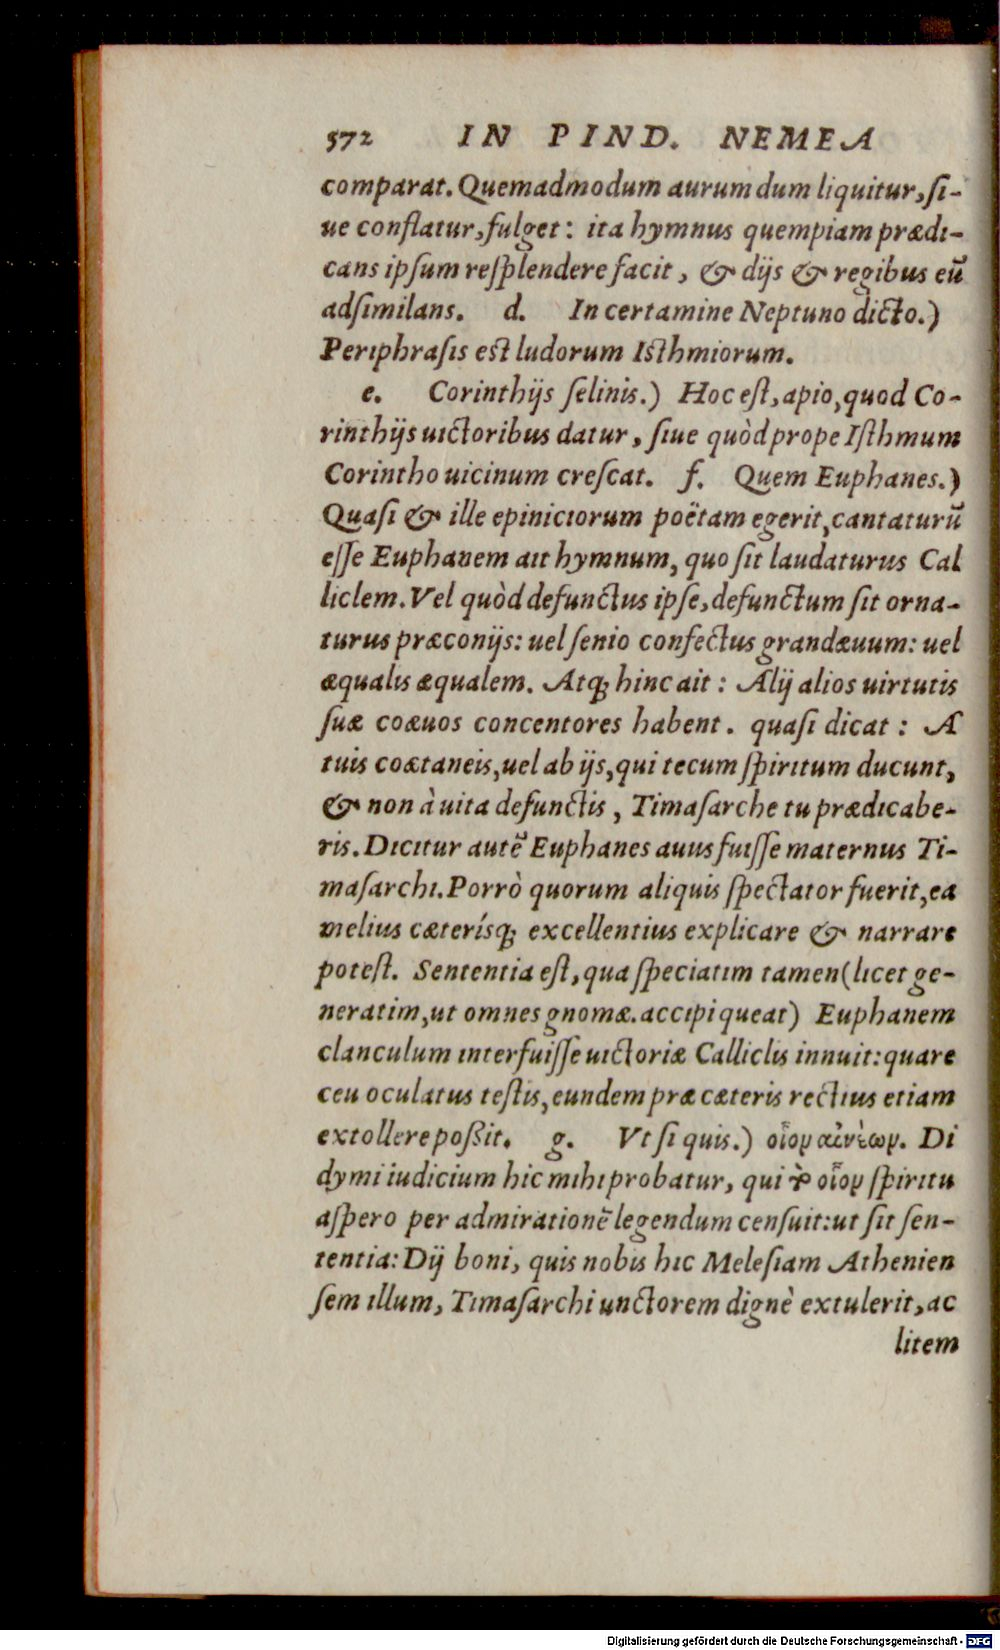 572 IN PIND. NEMEA
comparat. Quemadmodum aurum dum liquitur, ſi-
ue conflatur, fulget: ita hymnus quempiam prædi-
cans ipſum reſplendere facit, & dijs & regibus eũ
adſimilans. d. In certamine Neptuno dicto.)
Periphraſis eſt ludorum Iſthmiorum.
e. Corinthijs ſelinis.) Hoc eſt, apio, quod Co-
rinthijs uictoribus datur, ſiue quòd prope Iſthmum
Corintho uicinum creſcat. f. Quem Euphanes.)
Quaſi & ille epiniciorum poëtam egerit, cantaturũ
eſſe Euphanem ait hymnum, quo ſit laudaturus Cal
liclem. Vel quòd defunctus ipſe, defunctum ſit orna-
turus præconijs: uel ſenio confectus grandæuum: uel
æqualis æqualem. Atq; hinc ait: Alij alios uirtutis
ſuæ coæuos concentores habent. quaſi dicat: A
tuis coætaneis, uel ab ijs, qui tecum ſpiritum ducunt,
& non à uita defunctis, Timaſarche tu prædicabe-
ris. Dicitur autẽ Euphanes auus fuiſſe maternus Ti-
maſarchi. Porrò quorum aliquis ſpectator fuerit, ea
melius cæterísq; excellentius explicare & narrare
poteſt. Sententia eſt, qua ſpeciatim tamen (licet ge-
neratim, ut omnes gnomæ. accipi queat) Euphanem
clanculum interfuiſſe uictoriæ Calliclis innuit: quare
ceu oculatus teſtis, eundem præ cæteris rectius etiam
extollere poßit. g. Vt ſi quis.) οἷον αἰνέων. Di
dymi iudicium hic mihi probatur, qui τὸ οἷον ſpiritu
aſpero per admirationẽ legendum cenſuit: ut ſit ſen-
tentia: Dij boni, quis nobis hic Meleſiam Athenien
ſem illum, Timaſarchi unctorem dignè extulerit, ac
litem
Digitalisierung gefördert durch die Deutsche Forschungsgemeinschaft - DFG